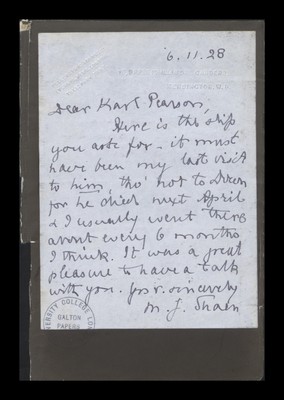 6.11.28
Dear Karl Pearson,
Here is the slip
you ask for - it must
have been my last visit
to him, tho' not to
for he died next April
& I usually went there
about every 6 months
I think. It was a great
pleasure to have a talk
with you. yrs v. sincerely
M. J. Shaen
UNIVERSITY COLLEGE LON
GALTON
PAPERS